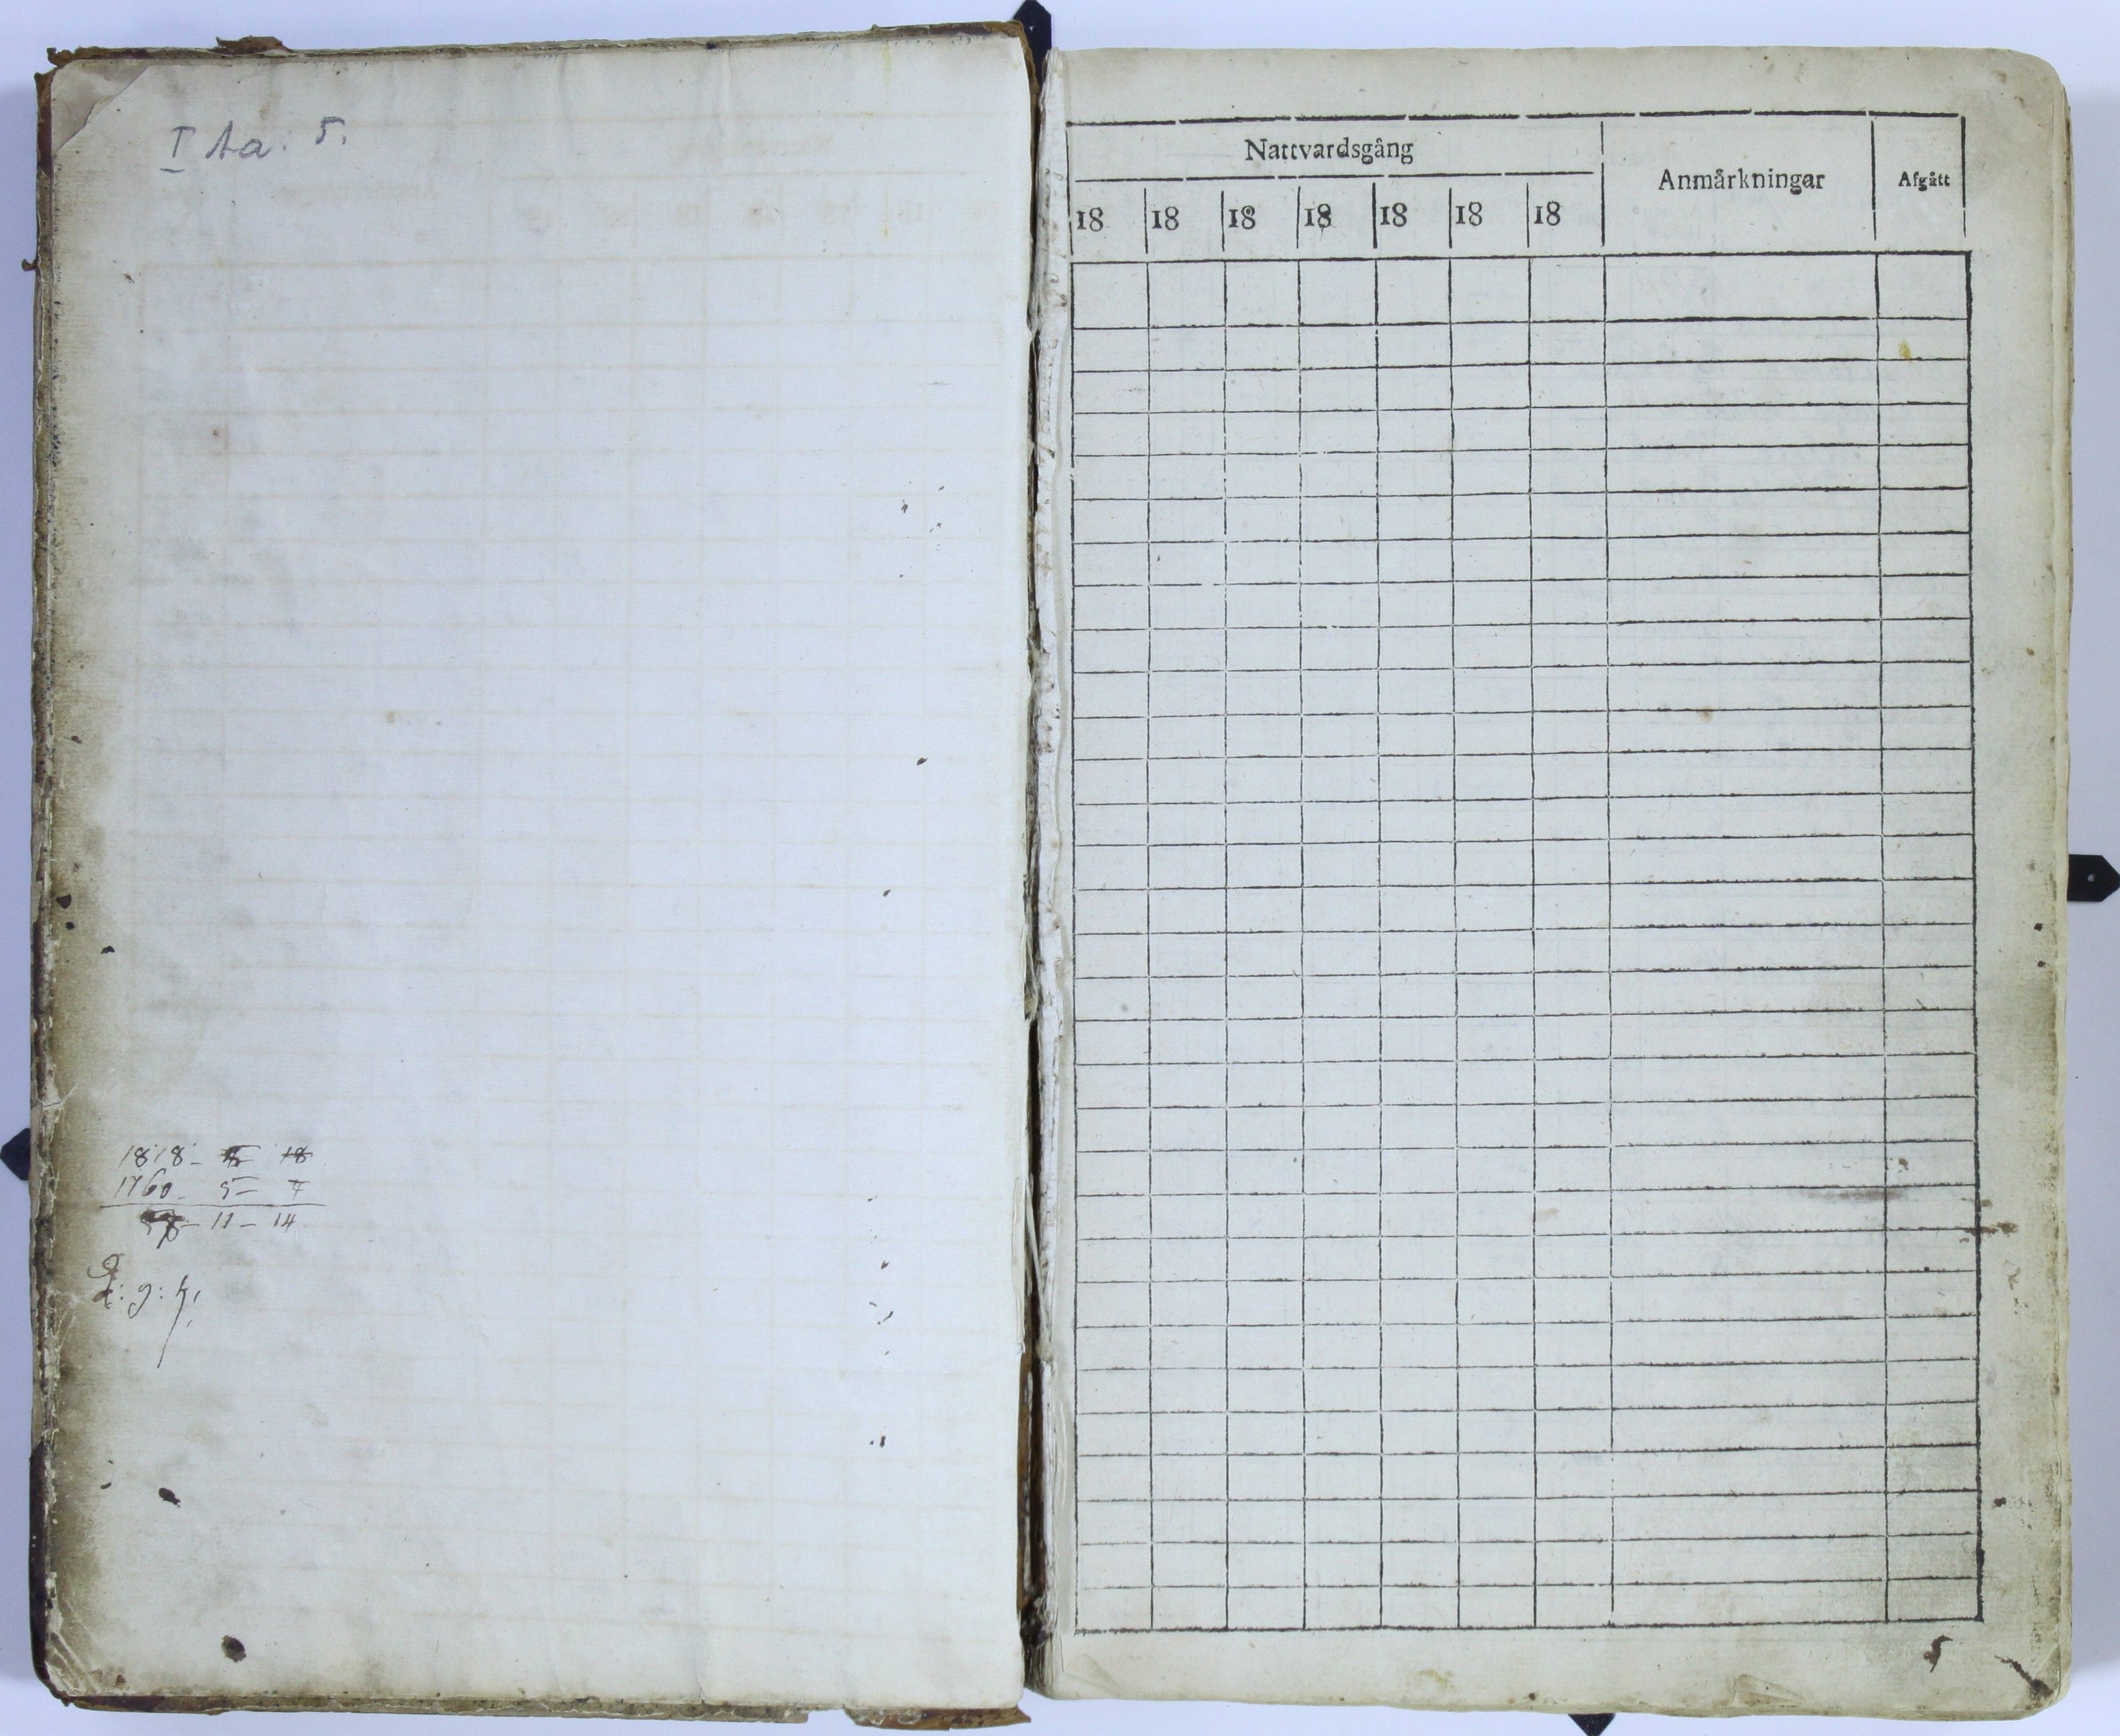 I Aa. 5.
1818 - 18
1760 - 5 - 7
58 - 11 - 14
Nattvardsgång
Anmärkningar
Afgått
18 18 18 18 18 18 18